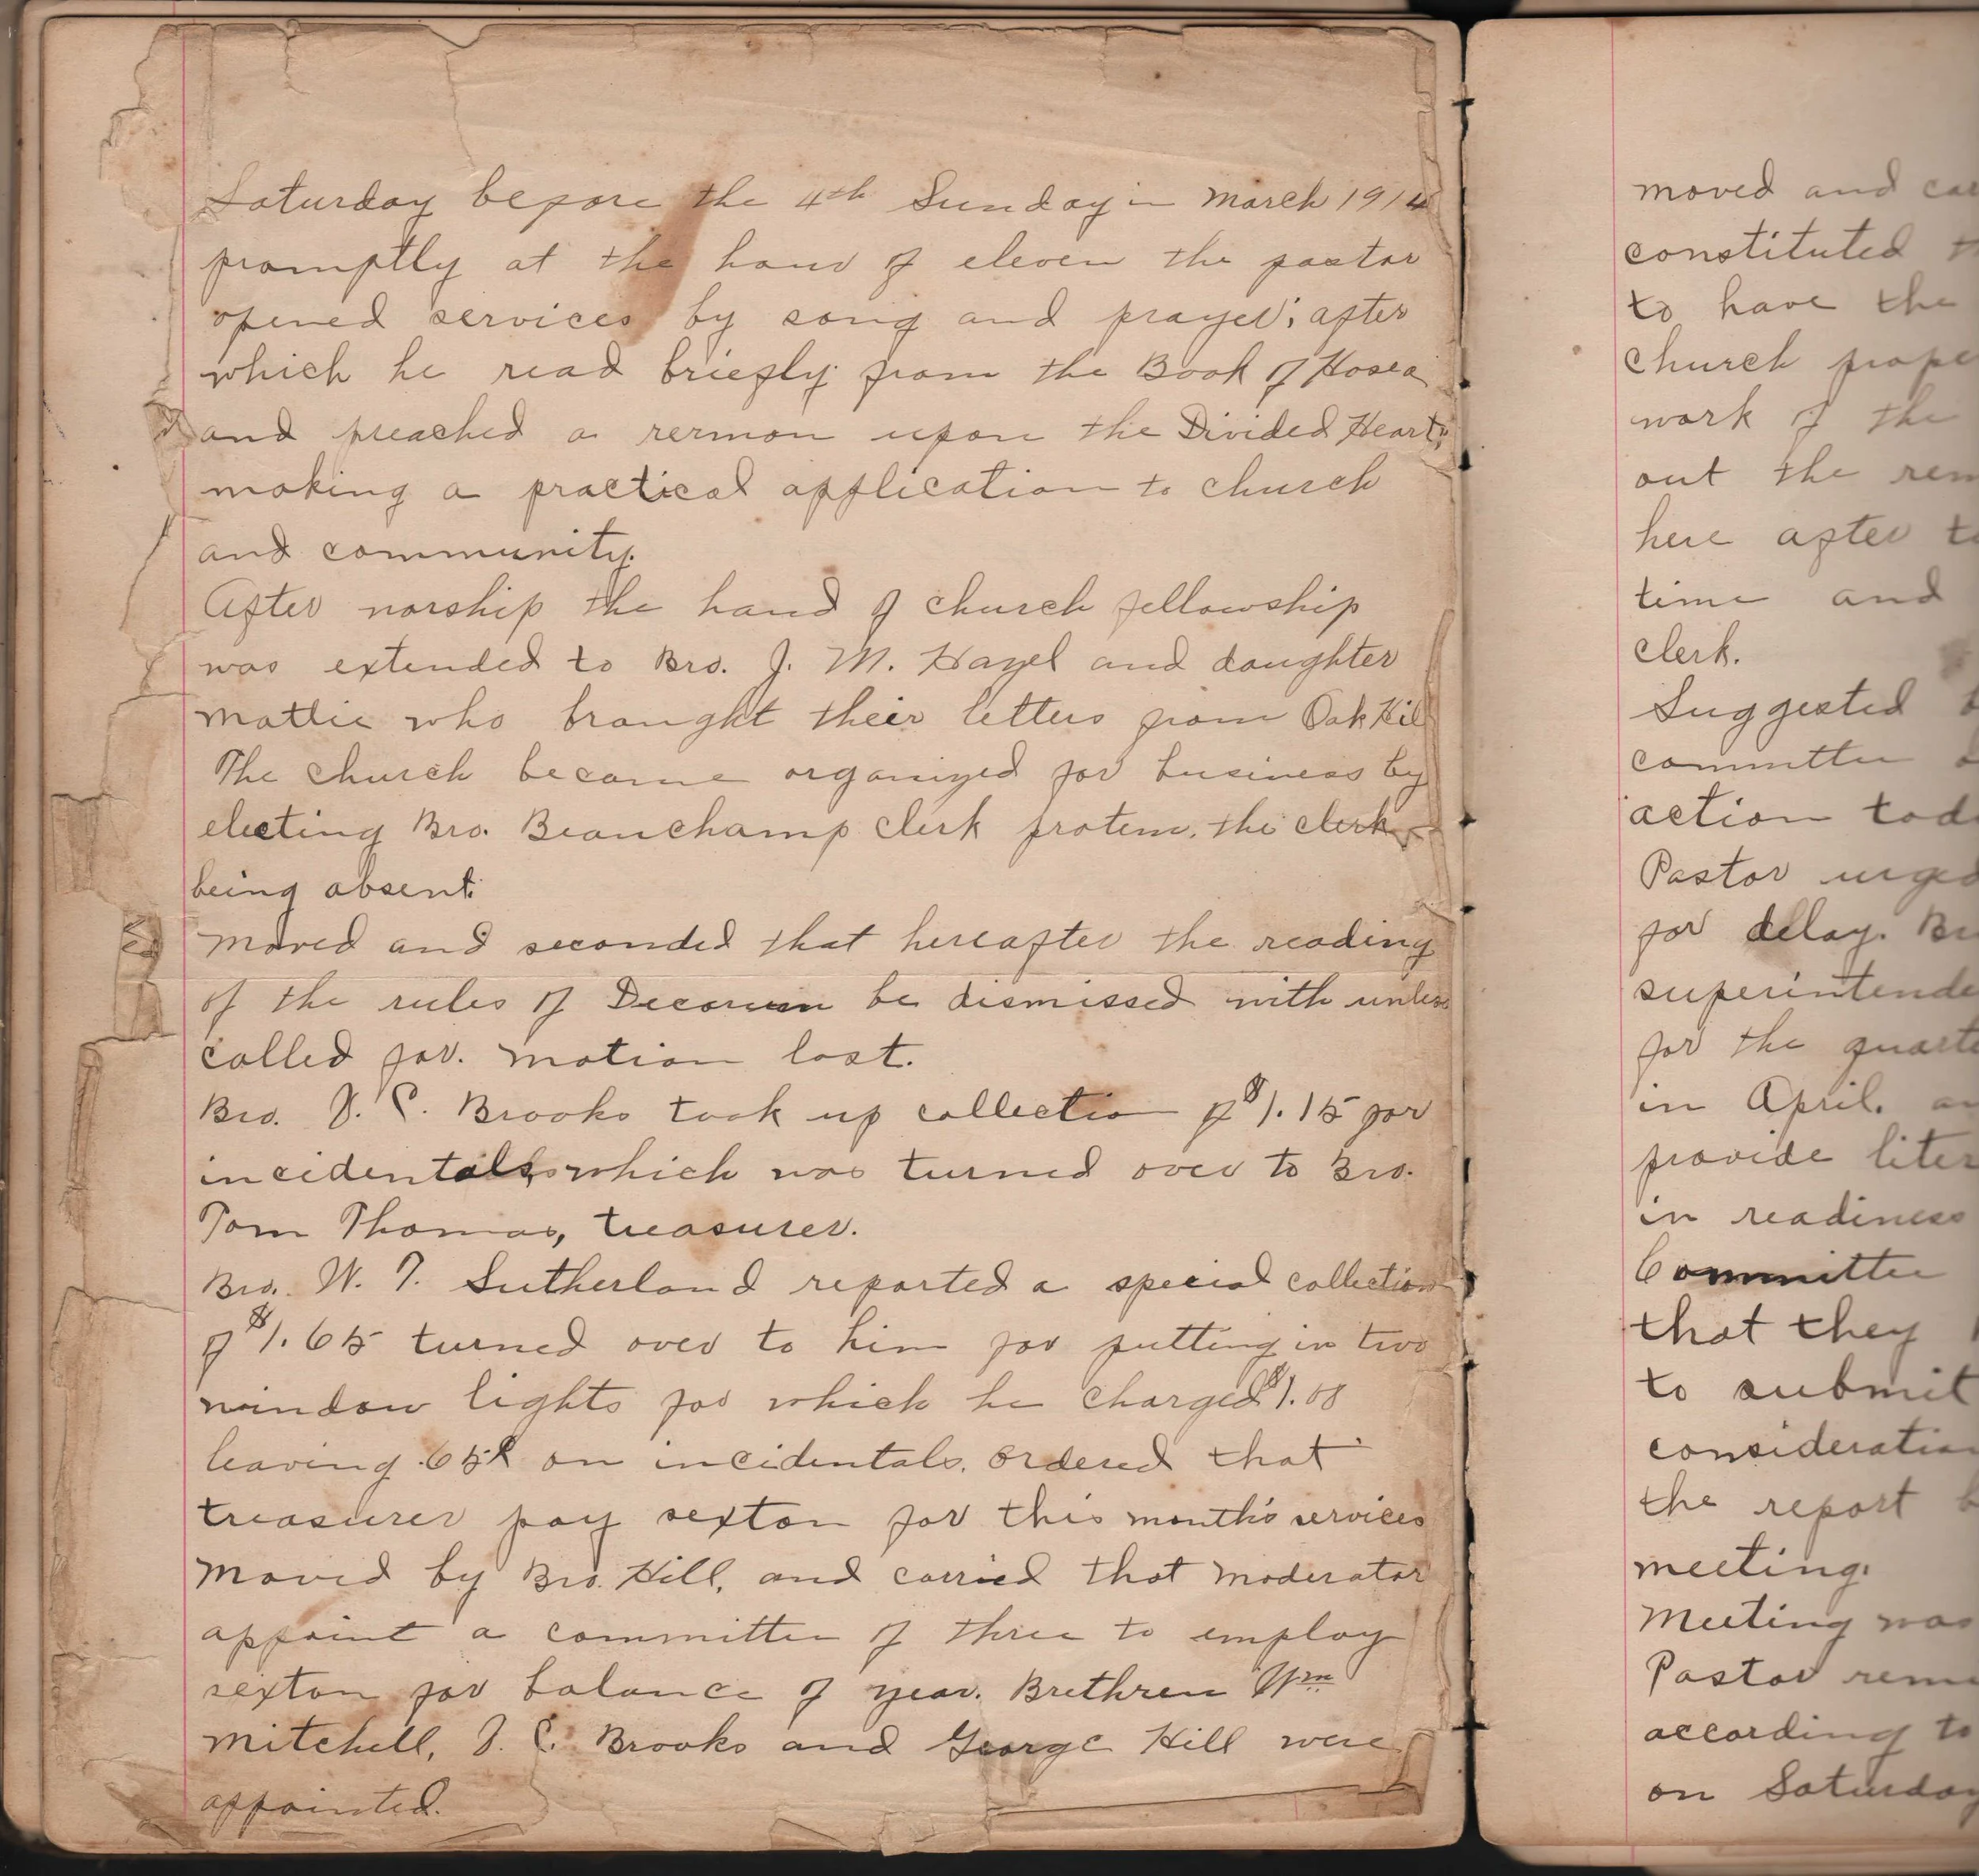 Saturday before the 4th Sunday in March 1914
promptly at the hour of eleven the pastor
opened services by song and prayer; after
which he read briefly from the Book of Hosea
and preached a sermon upon the Divided Heart,
making a practical application to church
and community.
After worship the hand of church fellowship
was extended to Bro. J. M. Hazel and daughter
Mattie who brought their letters from Oak Hill
The church became organized for business by
electing Bro. Beauchamp clerk protem. the clerk
being absent.
Moved and seconded that hereafter the reading
of the rules of Decorum be dismissed with unless
called for. Motion lost.
Bro. J. C. Brooks took up collection of $1.15 for
incidentals, which was turned over to Bro.
Tom Thomas, treasurer.
Bro. W. T. Sutherland reported a special collection
of $1.65 turned over to him for putting in two
window lights for which he charged $1.00
leaving .65¢ on incidentals. Ordered that
treasurer pay sexton for this month's services
Moved by Bro. Hill, and carried that Moderator
appoint a committee of three to employ
sexton for balance of year. Brethren Wm
Mitchell, J. C. Brooks and George Hill were
appointed.
moved and
constituted
to have the
church
work of the
out the
here after
time and
clerk.
Suggested
committee
action
Pastor urged
for delay.
superintende
for the
in April.
provide
in readiness
Committee
that they
to submit
consideration
the report
meeting.
Meeting was
Pastor
according to
on Saturday